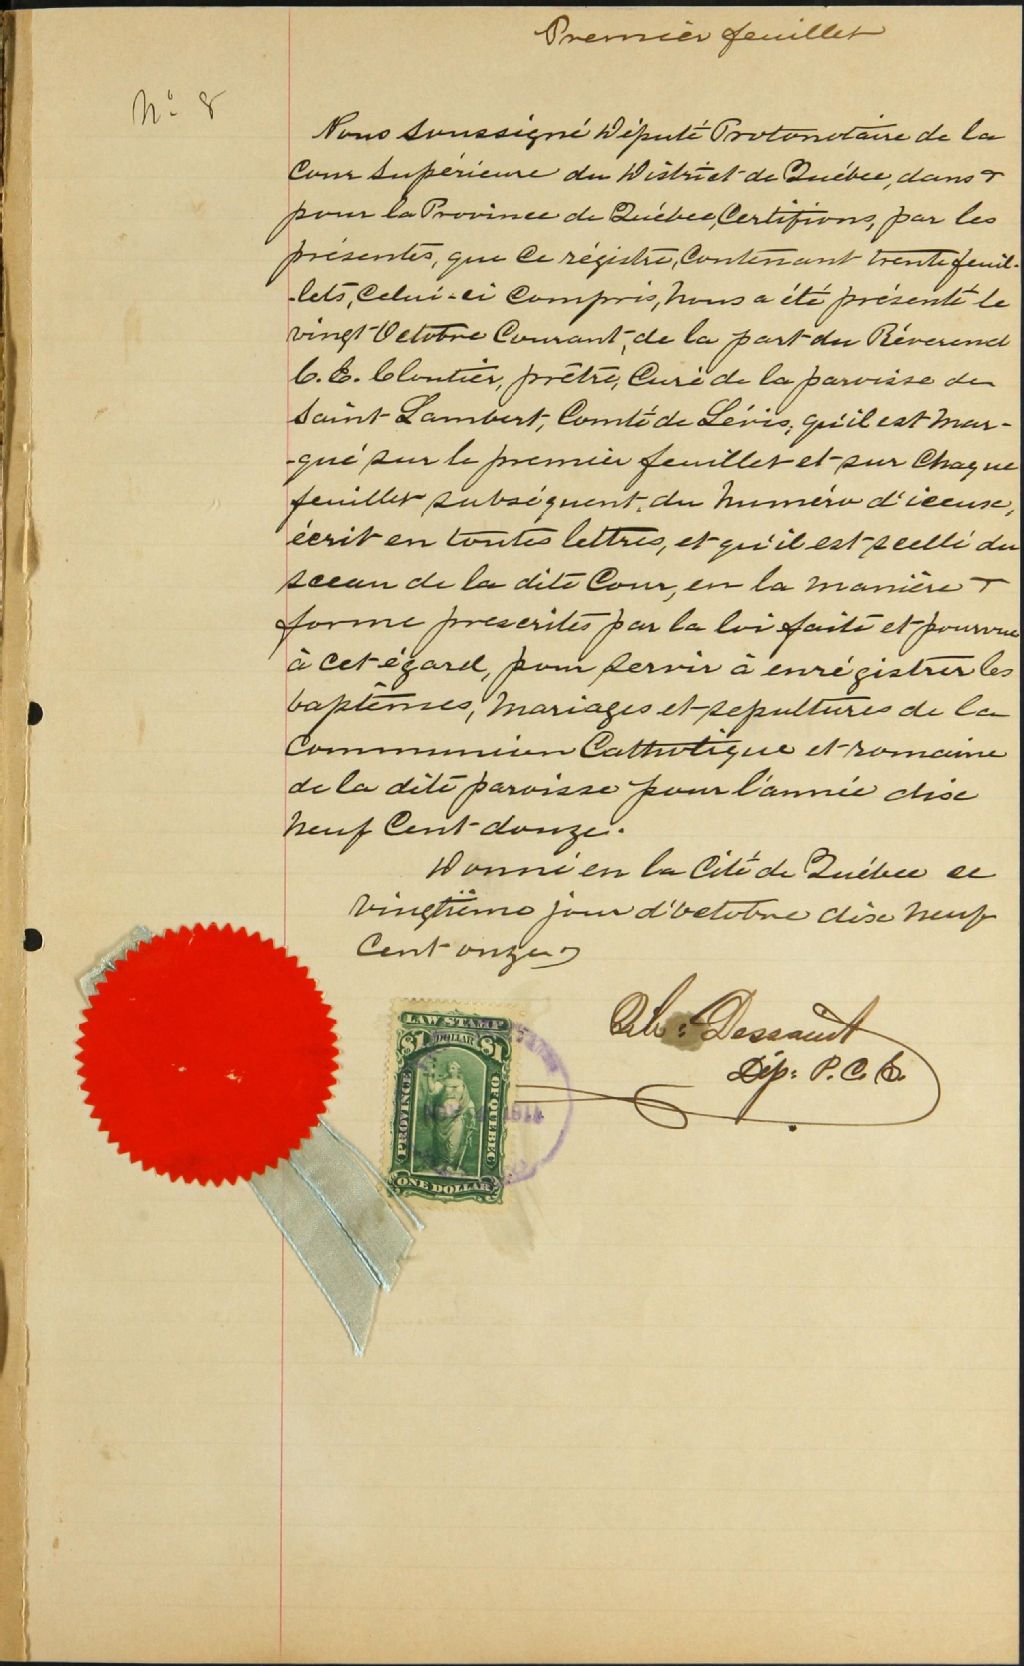 Premier feuillet
No 8
Nous soussigné Député Protonotaire de la
Cour Supérieure du District de Québec, dans &
pour la Province de Québec, Certifions, par les
présentes, que ce régistre, contenant trente feuil-
-lets, celui-ci compris, nous a été présenté le
vingt Octobre Courant, de la part du Révérend
C. E. Cloutier, prêtre, Curé de la paroisse de
Saint Lambert, Comté de Lévis; qu'il est mar-
-qué sur le premier feuillet et sur chaque
feuillet subséquent, du numéro d'iceux,
écrit en toutes lettres, et qu'il est scellé du
sceau de la dite Cour, en la manière &
forme prescrites par la loi faite et pourvue
à cet égard, pour servir à enrégistrer les
baptêmes, mariages et sépultures de la
Communion Catholique et romaine
de la dite paroisse pour l'année dix
neuf Cent douze.
Donné en la Cité de Québec ce
vingtième jour d'octobre dix neuf
Cent onze
Dessault
Dép. P.C.S.
LAW STAMP
$1 DOLLAR $1
PROVINCE
OF QUEBEC
ONE DOLLAR